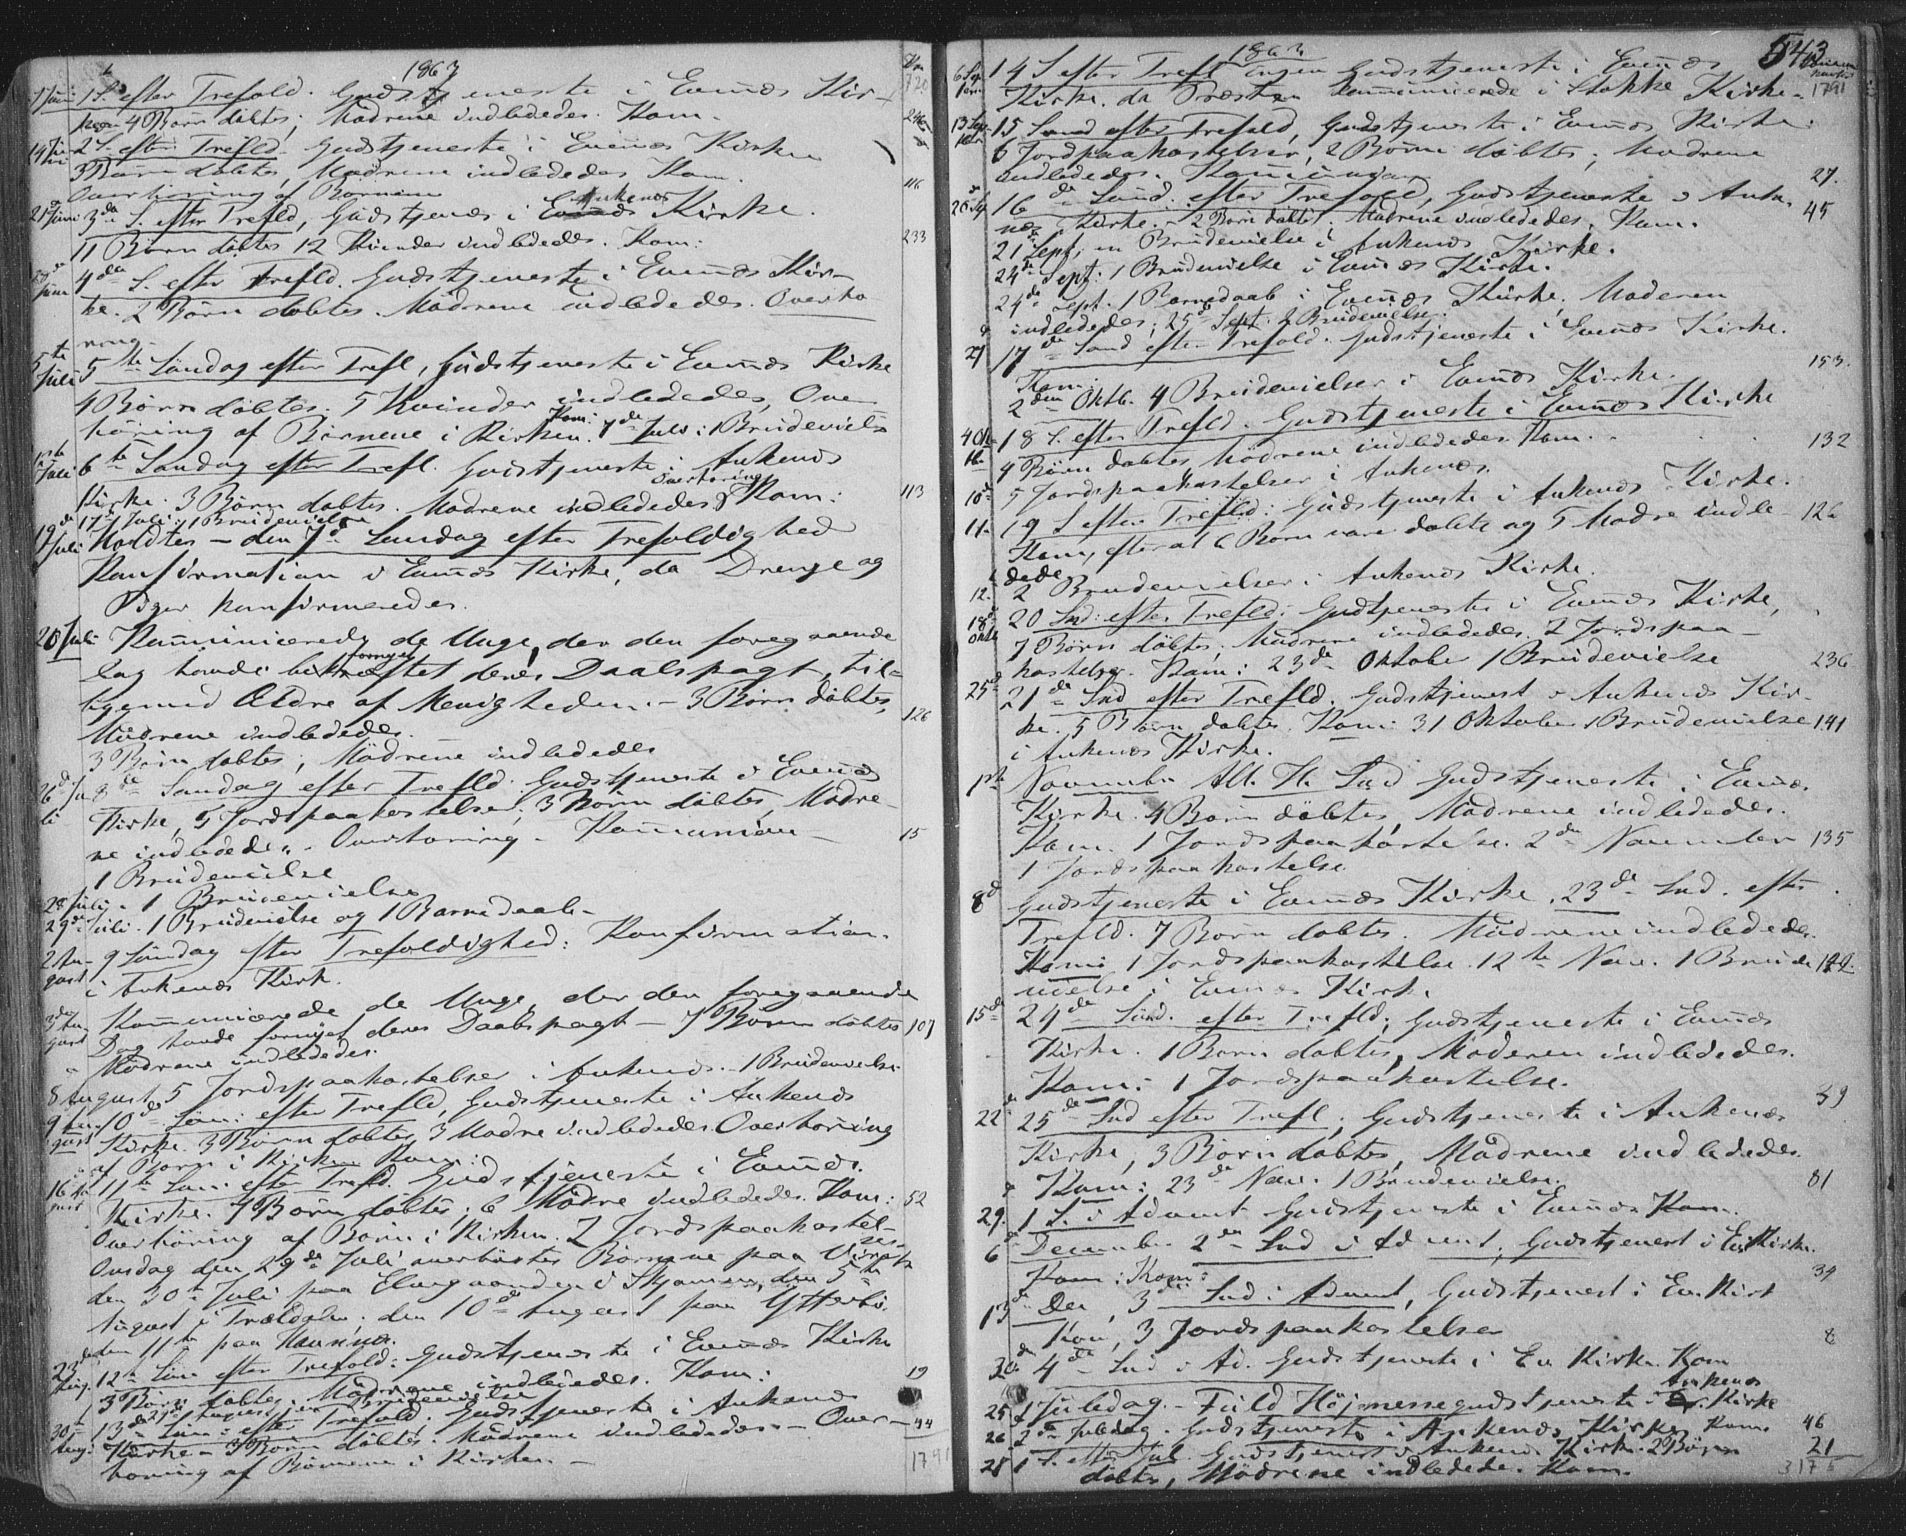 1863
1 Juni 1 S. efter Trefold. Gudstjeneste i Evenes Kir- 720
ken 4 Børn døbtes, Mødrene indlededes. Kom. 246
14 Juni 2 S. efter Trefld. Gudstjeneste i Evenes Kirke
3 Børn døbtes, Mødrene indlededes Kom. 116
Overhøring af Børnene
21 Juni 3de S. efter Trefld, Gudstjenes i Ankenes Kirke.
11 Børn døbtes 12 Kvinder indlededes. Kom: 233
Juni 4de S. efter Trefld. Gudstjeneste i Evenes Kir-
ke. 2 Børn døbtes. Mødrene indlededes. Overhø
ring
5te Juli 5te Søndag efter Trefl, Gudstjeneste i Evenes Kirke
4 Børn døbtes. 5 Kvinder indlededes, Over
høring af Børnene i Kirken. Kom: 7de Juli: 1 Brudevielse
Juli 6te Søndag efter Trefl. Gudstjeneste i Ankenes
Kirke. 3 Børn døbtes. Mødrene indlededes Overhøring Kom: 113
17 Juli: 1 Brudevielse
19de Juli Holdtes – den 7de Søndag efter Trefoldighed
Konfirmation i Evenes Kirke, da Drenge og
Piger konfirmeredes.
20 Juli Kommunicerede de Unge, der den foregaaende
Dag havde fornyet deres Daabspagt, til-
ligemed Ældre af Menigheden. – 3 Børn døbtes, 126
Mødrene indlededes.
3 Børn døbtes, Mødrene indlededes
26de Juli 8de Søndag efter Trefld. Gudstjeneste i Evenes
Kirke, 5 Jordspaakastelse, 3 Børn døbtes, Mødre-
ne indlededes. – Overhøring – Kommunion – 15
1 Brudevielse
28 Juli – 1 Brudevielse
29de Juli. 1 Brudevielse og 1 Barnedaab –
2 August 9 Søndag efter Trefoldighed: Konfirmation.
i Ankenes Kirk.
3de August Kommunicerede de Unge, der den foregaaende
Dag havde fornyet deres Daabspagt – 7 Børn døbtes 107
Mødrene indlededes.
8 August 5 Jordspaakastelser i Ankenes. – 1 Brudevielse
9 August 10de Søn: efter Trefld, Gudstjeneste i Ankenes
Kirke. 3 Børn døbtes 3 Mødre indlededes Overhøring
af Børn i Kirken Kom:
16 August 11te Søn: efter Trefld. Gudstjeneste i Evenes.
Kirke. 7 Børn døbtes; 6 Mødre indlededes. Kom: 52
Overhøring af Børn i Kirken. 2 Jordspaakastel-
ser
Onsdag den 29de Juli overhørtes Børnene paa
den 30te Juli paa Elvegaarden i Skjomen, den 5te
August i Trældalen. den 10de August paa
den 11te paa
23 Aug. 12te Søn efter Trefold: Gudstjeneste i Evenes Kirke
3 Børn døbtes. Mødrene indlededes. Kom: 19
27de August en Brudevielse
30te Aug: 13de Søn: efter Trefold. Gudstjeneste i Ankenes
Kirke – 3 Børn døbtes. Mødrene indlededes – Over- 44
høring af Børnene i Kirken. – 1791
1863 543
6 Sep tem 14 S efter Trefl ingen Gudstjeneste i Evenes
Kirke. da Præsten kommunicerede i Lødingen Kirke. 1791
13 Sep tem 15 Sønd efter Trefold, Gudstjeneste i Evenes Kirke.
6 Jordpaakastelser, 2 Børn døbtes, Mødrene
indlededes. Kom 27.
20 Sep 16de Sønd. efter Trefold, Gudstjeneste i Anke- 45
nes Kirke. – 2 Børn døbtes. Mødrene indlededes. Kom.
21 Sept, en Brudevielse i Ankenes Kirke.
24de Sept: 1 Brudevielse i Evenes Kirke.
24de Sept. 1 Barnedaab i Evenes Kirke. Moderen
indlededes; 25de Sept: 2 Brudevielse.
27 17de Sønd efter Trefold. Gudstjeneste i Evenes Kirke.
Kom: 153.
2den Oktb. 4 Brudevielser i Evenes Kirke.
4 Okt 18 S. efter Trefld. Gudstjeneste i Evenes Kirke
4 Børn døbtes, Mødrene indlededes. Kom. 132
10de 5 Jordspaakastelser i Ankenes.
11. 19 S efter Trefld: Gudstjeneste i Ankenes Kirke.
Kom, efter at 6 Børn vare døbte og 5 Mødre indle- 126
dede.
12. 2 Brudevielser i Ankenes Kirke.
18de Oktb 20 Snd: efter Trefld: Gudtjeneste i Evenes Kirke,
7 Børn døbtes, Mødrene indlededes. 2 Jordspaa-
kastelser. Kom: 23de Oktober 1 Brudevielse 236
25de 21de Snd efter Trefld. Gudstjenest i Ankenes Kir-
ke. 5 Børn døbtes. Kom: 31 Oktober 1 Brudevielse 141
i Ankenes Kirke.
1ste November Alle H. Snd Gudstjeneste i Evenes
Kirke. 4 Børn døbtes, Mødrene indlededes.
Kom. 1 Jordspaakastelse. 2de November 135
1 Jordspaakastelse.
8de Gudstjeneste i Evenes Kirke. 23de Snd. efter
Trefld. 7 Børn døbtes. Mødrene indlededes.
Kom: 1 Jordspaakastelse. 12te Nov. 1 Brude
vielse i Evenes Kirke
15de 24de Sønd. efter Trefld; Gudstjeneste i Evenes
Kirke. 1 Barn døbtes, Moderen indlededes.
Kom: 1 Jordspaakastelse.
22de 25de Snd efter Trefl; Gudstjeneste i Ankenes 59
Kirke, 3 Børn døbtes, Mødrene indlededes.
Kom: 23de Nov. 1 Brudevielse. 81
29. 1 S. i Advent Gudstjeneste i Evenes Kom.
6 December 2den Snd i Advent, Gudstjenest i Ev Kirke.
Kom: Kom: 39
13de Dec, 3die Snd i Advent, Gudstjenest i Ev. Kirk
Kom, 3 Jordspaakastelser 8
20de 4de Snd i Ad. Gudstjeneste i Ev. Kirke. Kom
25. 1 Juledag. – Fuld Høimessegudstjeneste i Ankenes Kirke
26 2de Juledag. Gudstjeneste i Ankenes Kirke, Kom. 46
28 1 S. efter Jul. Gudstjenest i Ankenes Kirke. 2 Børn 21
døbtes, Mødrene indledede. Kom. 3175